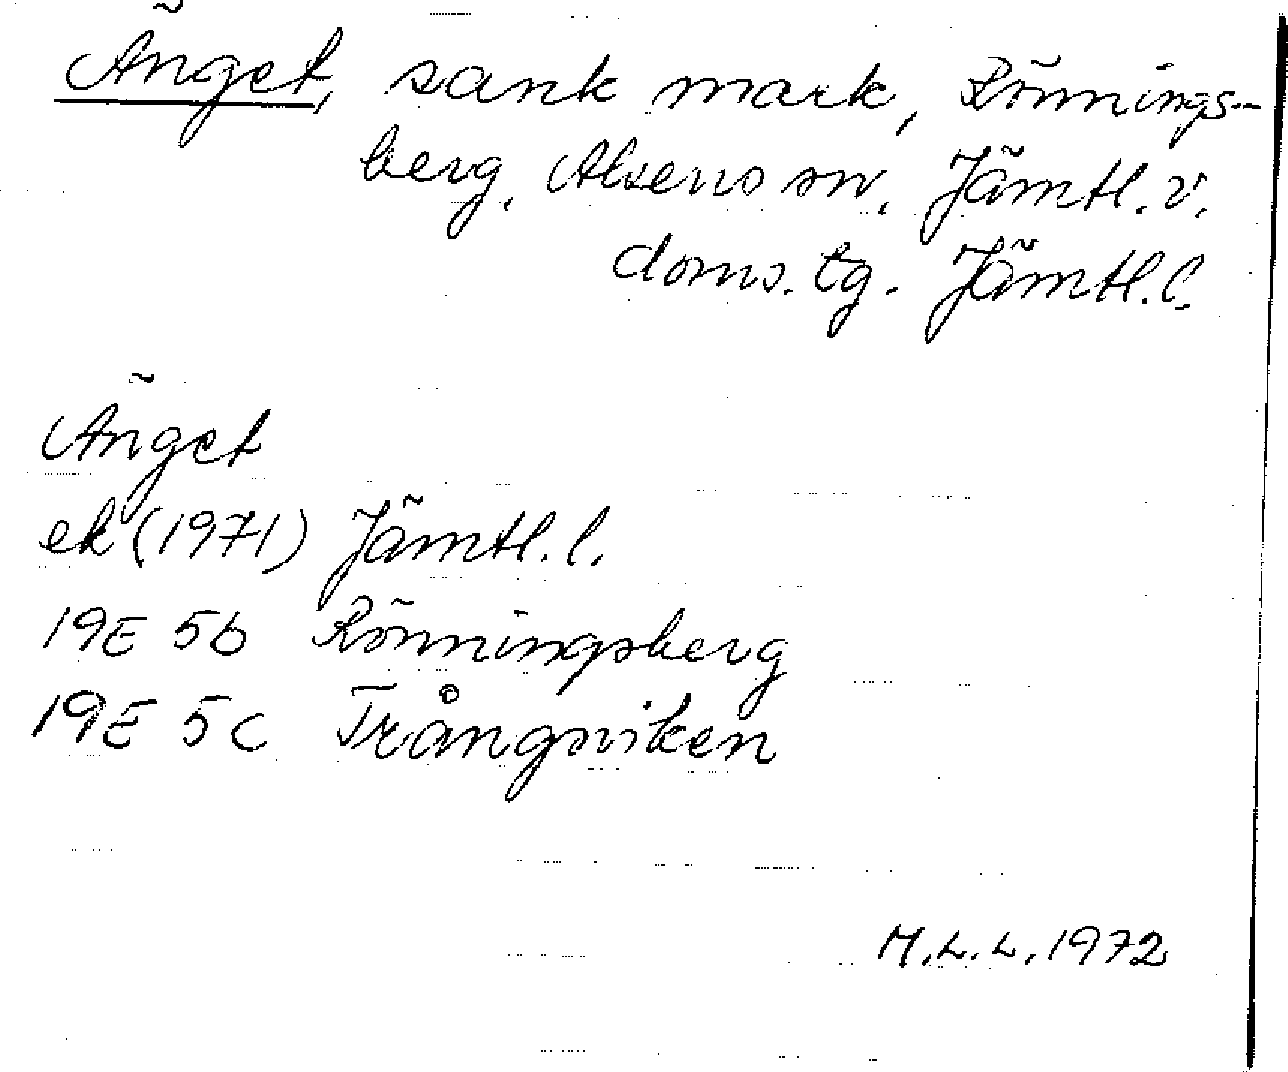 Änget, sank mark, Rönnings-
berg, Alsens sn, Jämtl. v.
doms. tg. Jämtl. l.
Änget
ek (1971) Jämtl. l.
19E 5b Rönningsberg
19E 5c Trångsviken
M.L.L. 1972